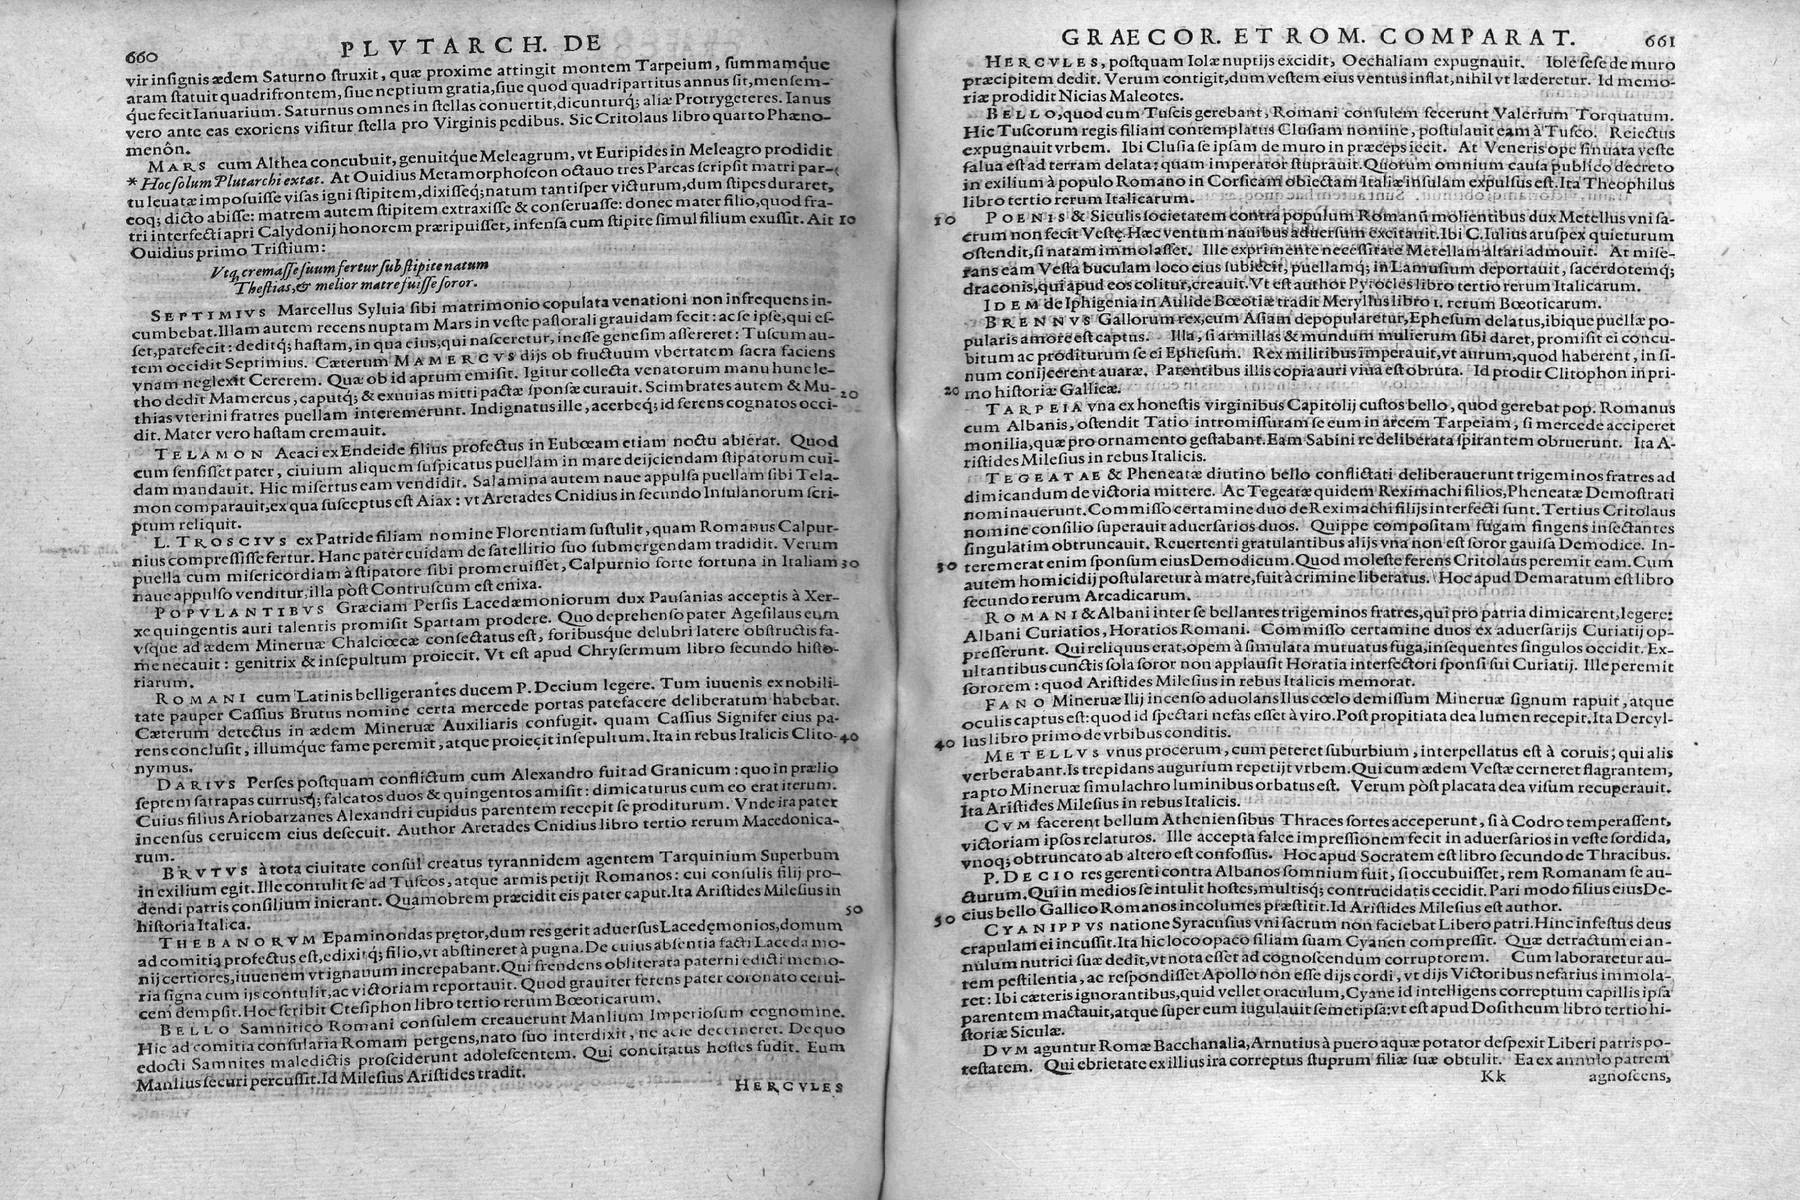 660 PLVTARCH. DE
vir insignis ædem Saturno struxit, quæ proxime attingit montem Tarpeium, summamq́ue
aram statuit quadrifrontem, siue neptium gratia, siue quod quadripartitus annus sit, mensem-
q́ue fecit Ianuarium. Saturnus omnes in stellas conuertit, dicunturq́; aliæ Protrygeteres. Ianus
vero ante eas exoriens visitur stella pro Virginis pedibus. Sic Critolaus libro quarto Phæno-
menôn.
MARS cum Althea concubuit, genuitq́ue Meleagrum, vt Euripides in Meleagro prodidit
* Hoc solum Plutarchi extat. At Ouidius Metamorphoseon octauo tres Parcas scripsit matri par-
tu leuatæ imposuisse visas igni stipitem, dixisseq́; natum tantisper victurum, dum stipes duraret,
eoq́; dicto abisse: matrem autem stipitem extraxisse & conseruasse: donec mater filio, quod fra-
tri interfecti apri Calydonij honorem præripuisset, infensa cum stipite simul filium exussit. Ait 10
Ouidius primo Tristium:
Vtq, cremasse suum fertur sub stipite natum
Thestias, & melior matre fuisse soror.
SEPTIMIVS Marcellus Syluia sibi matrimonio copulata venationi non infrequens in-
cumbebat. Illam autem recens nuptam Mars in veste pastorali grauidam fecit: ac se ipse, qui es-
set, patefecit: deditq́; hastam, in qua eius, qui nasceretur, inesse genesim assereret: Tuscum au-
tem occidit Septimius. Cæterum MAMERCVS dijs ob fructuum vbertatem sacra faciens
vnam neglexit Cererem. Quæ ob id aprum emisit. Igitur collecta venatorum manu hunc le-
tho dedit Mamercus, caputq́; & exuuias mitti pactæ sponsæ curauit. Scimbrates autem & Mu- 20
thias vterini fratres puellam interemerunt. Indignatus ille, acerbeq́; id ferens cognatos occi-
dit. Mater vero hastam cremauit.
TELAMON Acaci ex Endeide filius profectus in Eubœam etiam noctu abierat. Quod
cum sensisset pater, ciuium aliquem suspicatus puellam in mare deijciendam stipatorum cui-
dam mandauit. Hic misertus eam vendidit. Salamina autem naue appulsa puellam sibi Tela-
mon comparauit, ex qua susceptus est Aiax: vt Aretades Cnidius in secundo Insulanorum scri-
ptum reliquit.
L. TROSCIVS ex Patride filiam nomine Florentiam sustulit, quam Romanus Calpur-
nius compressisse fertur. Hanc pater cuidam de satellitio suo submergendam tradidit. Verum
puella cum misericordiam à stipatore sibi promeruisset, Calpurnio forte fortuna in Italiam 30
naue appulso venditur, illa pòst Contruscum est enixa.
POPVLANTIBVS Græciam Persis Lacedæmoniorum dux Pausanias acceptis à Xer-
xe quingentis auri talentis promisit Spartam prodere. Quo deprehenso pater Agesilaus eum
vsque ad ædem Mineruæ Chalciœcæ consectatus est, foribusque delubri latere obstructis fa-
me necauit: genitrix & insepultum proiecit. Vt est apud Chrysermum libro secundo histo-
riarum.
ROMANI cum Latinis belligerantes ducem P. Decium legere. Tum iuuenis ex nobili-
tate pauper Cassius Brutus nomine certa mercede portas patefacere deliberatum habebat.
Cæterum detectus in ædem Mineruæ Auxiliaris confugit. quam Cassius Signifer eius pa-
rens conclusit, illumque fame peremit, atque proiecit insepultum. Ita in rebus Italicis Clito- 40
nymus.
DARIVS Perses postquam conflictum cum Alexandro fuit ad Granicum: quo in prælio
septem satrapas currusq́; falcatos duos & quingentos amisit: dimicaturus cum eo erat iterum.
Cuius filius Ariobarzanes Alexandri cupidus parentem recepit se proditurum. Vnde ira pater
incensus ceruicem eius desecuit. Author Aretades Cnidius libro tertio rerum Macedonica-
rum.
BRVTVS à tota ciuitate consul creatus tyrannidem agentem Tarquinium Superbum
in exilium egit. Ille contulit se ad Tuscos, atque armis petijt Romanos: cui consulis filij pro-
dendi patris consilium inierant. Quamobrem præcidit eis pater caput. Ita Aristides Milesius in
historia Italica. 50
THEBANORVM Epaminondas prętor, dum res gerit aduersus Lacedęmonios, domum
ad comitia profectus est, edixitq́; filio, vt abstineret à pugna. De cuius absentia facti Lacedæmo-
nij certiores, iuuenem vt ignauum increpabant. Qui frendens obliterata paterni edicti memo-
ria signa cum ijs contulit, ac victoriam reportauit. Quod grauiter ferens pater coronato cerui-
cem dempsit. Hoc scribit Ctesiphon libro tertio rerum Bœoticarum.
BELLO Samnitico Romani consulem creauerunt Manlium Imperiosum cognomine.
Hic ad comitia consularia Romam pergens, nato suo interdixit, ne acie decerneret. De quo
edocti Samnites maledictis prosciderunt adolescentem. Qui concitatus hostes fudit. Eum
Manlius securi percussit. Id Milesius Aristides tradit.
HERCVLES
GRAECOR. ET ROM. COMPARAT. 661
HERCVLES, postquam Iolæ nuptijs excidit, Oechaliam expugnauit. Iole sese de muro
præcipitem dedit. Verum contigit, dum vestem eius ventus inflat, nihil vt læderetur. Id memo-
riæ prodidit Nicias Maleotes.
BELLO, quod cum Tuscis gerebant, Romani consulem fecerunt Valerium Torquatum.
Hic Tuscorum regis filiam contemplatus Clusiam nomine, postulauit eam à Tusco. Reiectus
expugnauit vrbem. Ibi Clusia se ipsam de muro in præceps iecit. At Veneris ope sinuata veste
salua est ad terram delata: quam imperator stuprauit. Quorum omnium causa publico decreto
in exilium à populo Romano in Corsicam obiectam Italiæ insulam expulsus est. Ita Theophilus
libro tertio rerum Italicarum.
10 POENIS & Siculis societatem contra populum Romanũ molientibus dux Metellus vni sa-
crum non fecit Vestę. Hæc ventum nauibus aduersum excitauit. Ibi C. Iulius aruspex quieturum
ostendit, si natam immolasset. Ille exprimente necessitate Metellam altari admouit. At mise-
rans eam Vesta buculam loco eius subiecit, puellamq́; in Lamusium deportauit, sacerdotemq́;
draconis, qui apud eos colitur, creauit. Vt est author Pyrocles libro tertio rerum Italicarum.
IDEM de Iphigenia in Aulide Bœotiæ tradit Meryllus libro 1. rerum Bœoticarum.
BRENNVS Gallorum rex, cum Asiam depopularetur, Ephesum delatus, ibique puellæ po-
pularis amore est captus. Illa, si armillas & mundum mulierum sibi daret, promisit ei concu-
bitum ac proditurum se ei Ephesum. Rex militibus imperauit, vt aurum, quod haberent, in si-
num conijcerent auaræ. Parentibus illis copia auri viua est obruta. Id prodit Clitophon in pri-
20 mo historiæ Gallicæ.
TARPEIA vna ex honestis virginibus Capitolij custos bello, quod gerebat pop. Romanus
cum Albanis, ostendit Tatio intromissuram se eum in arcem Tarpeiam, si mercede acciperet
monilia, quæ pro ornamento gestabant. Eam Sabini re deliberata spirantem obruerunt. Ita A-
ristides Milesius in rebus Italicis.
TEGEATAE & Pheneatæ diutino bello conflictati deliberauerunt trigeminos fratres ad
dimicandum de victoria mittere. Ac Tegeatæ quidem Reximachi filios, Pheneatæ Demostrati
nominauerunt. Commisso certamine duo de Reximachi filijs interfecti sunt. Tertius Critolaus
nomine consilio superauit aduersarios duos. Quippe compositam fugam fingens insectantes
singulatim obtruncauit. Reuertenti gratulantibus alijs vna non est soror gauisa Demodice. In-
30 teremerat enim sponsum eius Demodicum. Quod moleste ferens Critolaus peremit eam. Cum
autem homicidij postularetur à matre, fuit à crimine liberatus. Hoc apud Demaratum est libro
secundo rerum Arcadicarum.
ROMANI & Albani inter se bellantes trigeminos fratres, qui pro patria dimicarent, legere:
Albani Curiatios, Horatios Romani. Commisso certamine duos ex aduersarijs Curiatij op-
presserunt. Qui reliquus erat, opem à simulata mutuatus fuga, insequentes singulos occidit. Ex-
ultantibus cunctis sola soror non applausit Horatia interfectori sponsi sui Curiatij. Ille peremit
sororem: quod Aristides Milesius in rebus Italicis memorat.
FANO Mineruæ Ilij incenso aduolans Ilus cœlo demissum Mineruæ signum rapuit, atque
oculis captus est: quod id spectari nefas esset à viro. Post propitiata dea lumen recepit. Ita Dercyl-
40 lus libro primo de vrbibus conditis.
METELLVS vnus procerum, cum peteret suburbium, interpellatus est à coruis; qui alis
verberabant. Is trepidans augurium repetijt vrbem. Qui cum ædem Vestæ cerneret flagrantem,
rapto Mineruæ simulachro luminibus orbatus est. Verum pòst placata dea visum recuperauit.
Ita Aristides Milesius in rebus Italicis.
CVM facerent bellum Atheniensibus Thraces sortes acceperunt, si à Codro temperassent,
victoriam ipsos relaturos. Ille accepta falce impressionem fecit in aduersarios in veste sordida,
vnoq́; obtruncato ab altero est confossus. Hoc apud Socratem est libro secundo de Thracibus.
P. DECIO res gerenti contra Albanos somnium fuit, si occubuisset, rem Romanam se au-
cturum. Qui in medios se intulit hostes, multisq́; contrucidatis cecidit. Pari modo filius eius De-
50 cius bello Gallico Romanos incolumes præstitit. Id Aristides Milesius est author.
CYANIPPVS natione Syracusius vni sacrum non faciebat Libero patri. Hinc infestus deus
crapulam ei incussit. Ita hic loco opaco filiam suam Cyanen compressit. Quæ detractum ei an-
nulum nutrici suæ dedit, vt nota esset ad cognoscendum corruptorem. Cum laboraretur au-
tem pestilentia, ac respondisset Apollo non esse dijs cordi, vt dijs Victoribus nefarius immola-
ret: Ibi cæteris ignorantibus, quid vellet oraculum, Cyane id intelligens correptum capillis ipsa
parentem mactauit, atque super eum iugulauit semetipsa: vt est apud Dositheum libro tertio hi-
storiæ Siculæ.
DVM aguntur Romæ Bacchanalia, Arnutius à puero aquæ potator despexit Liberi patris po-
testatem. Qui ebrietate ex illius ira correptus stuprum filiæ suæ obtulit. Ea ex annulo patrem
Kk agnoscens,